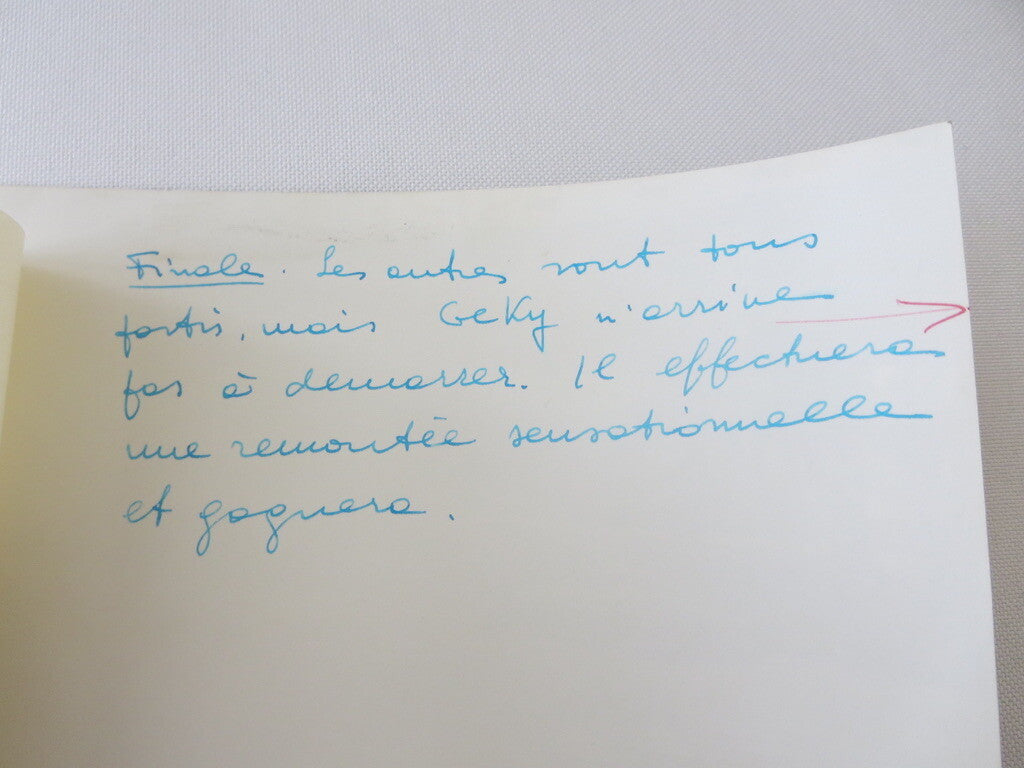 Finale. Les autres sont tous
partis, mais GeKy n'arrive
pas à demarrer. Il effectuera
une remontée sensationnelle
et gagnera.